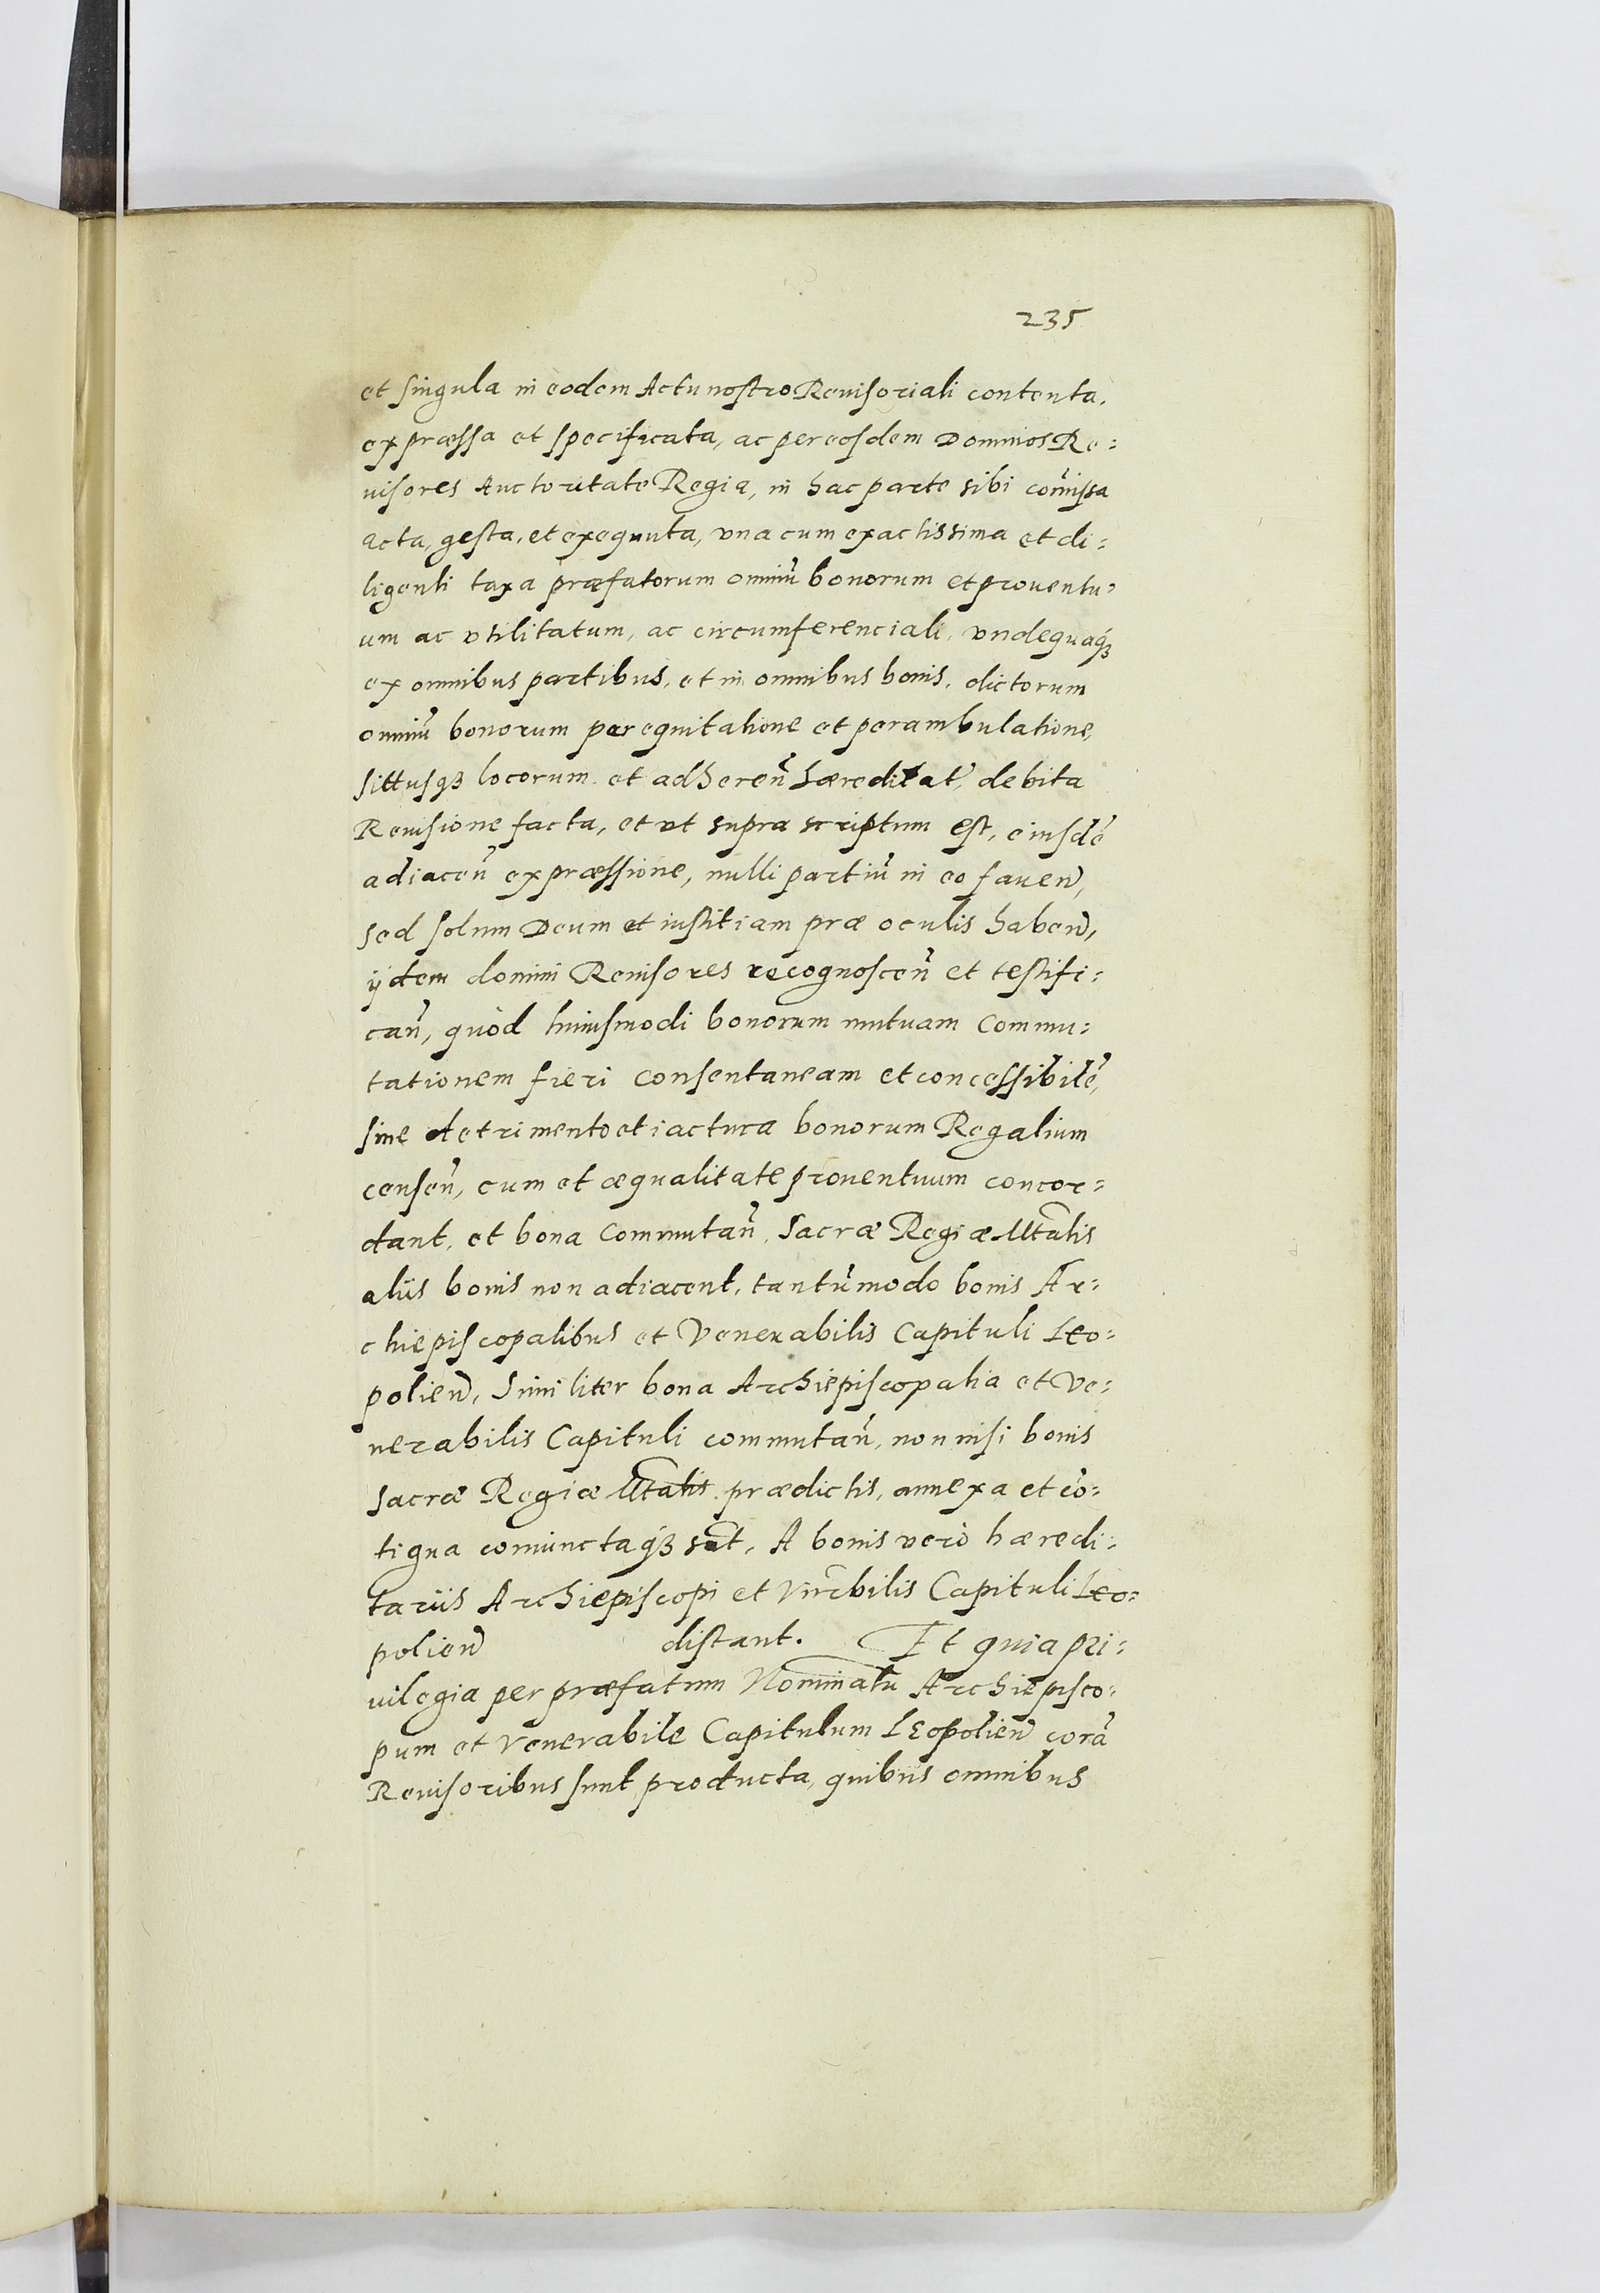 235
et singula in eodem Actu nostro Reuisoriali contenta,
expræssa et specificata, ac per eosdem Dominos Re:
uisores Auctoritate Regia, in hac parte sibi com̃issa
acta, gesta, et exequuta, vna cum exactissima et di:
ligenti taxa præfatorum omniũ bonorum et prouentu:
um ac vtilitatum, ac circumferenciali, vndequaq́ꝫ
ex omnibus partibus, et in omnibus bonis, dictorum
omniũ bonorum perequitatione et perambulatione,
sittusqꝫ locorum et adheren̄ hæreditat̄, debita
Reuisione facta, et vt supra scriptum est, eiusdē
adiacen̄ expræssione, nulli partiũ in eo fauen̄,
sed solum Deum et iustitiam præ oculis haben̄,
ijdem domini Reuisores recognoscen̄ et testifi:
can̄, quòd huiusmodi bonorum mutuam Commu:
tationem fieri consentaneam et concessibilē,
sine detrimento et iactura bonorum Regalium
censen̄, cum et æqualitate prouentuum concor:
dant, et bona Commutan̄, Sacræ Regiæ Mtatis
aliis bonis non adiacent, tantũmodo bonis Ar:
chiepiscopalibus et Venerabilis Capituli Leo:
polien̄, Similiter bona Archiepiscopalia et Ve:
nerabilis Capituli commutan̄, non nisi bonis
sacræ Regiæ Mtatis prædictis, annexa et cō:
tigua coniunctaq́ꝫ sũt, A bonis verò hæredi:
tariis Archiepiscopi et Vnr̃bilis Capituli Leo:
polien̄ distant. Et quia pri:
uilegia per præfatum Nominatũ Archiepisco:
pum et Venerabile Capitulum Leopolien̄ corã
Reuisoribus sunt producta, quibus omnibus